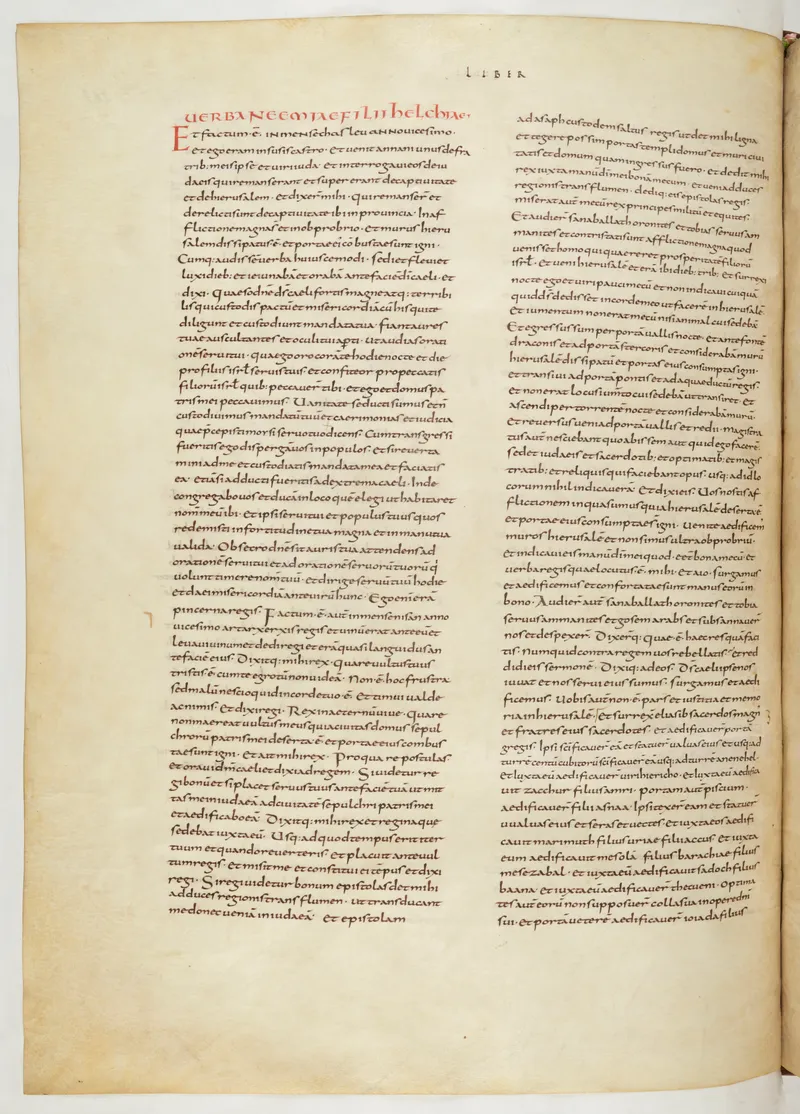 LIBER
UERBA NEEMIAE FILII hELChIAE·
Et factum ē· in mense chasleu anno uicesimo·
et ego eram in susis castro· Et uenit annani unus de fra
trib: meis ipse et uiri iuda· Et interrogaui eos de iu
daeis qui remanserant et supererant de captiuitate
et de hierusalem· et dixer̄ mihi· qui remanser̄ et
derelicti sunt de captiuitate ibi in prouincia· in af
flictione magna st̄ et in obprobrio· et murus hieru
salem dissipatus ē· et portae ei cōbustae sunt igni·
Cumq; audissē uerba huiuscemodi· sedi et fleui et
luxi dieb: et ieiunabā et orabā ante faciē dī caeli· et
dixi· Quaeso dn̄e ds̄ caeli fortis magne atq: terribi
lis qui custodis pactū et misericordiā cū his qui te
diligunt et custodiunt mandata tua· fiant aures
tuae auscultantes et oculi tui apti· ut audias orati
onē serui tui· quā ego oro corā te hodie nocte et die
pro filiis isrl̄ seruis tuis· et confiteor pro peccatis
filiorū isrl̄ quib· peccauer̄ tibi· et ego et domus pa
tris mei peccauimus· Uanitate seducti sumus et n̄
custodiuimus mandatū tuū et caerimonias et iudicia
quae p̄cepisti morsi seruo tuo dicens· Cum transgressi
fueritis ego dispergā uos in populos· et si reuerta
mini ad me et custodiatis mandata mea et faciatis
ea· etiā si adducti fueritis ad extrema caeli· Inde
congregabo uos et ducā in locū quē elegi ut habitaret
nom̄ meū ibi· et ipsi serui tui et populus tuus quos
redemisti in fortitudine tua magna et in manu tua
ualida· Obsecro dn̄e sit auris tua attendens ad
orationē serui tui et ad orationē seruorū tuorū q̄
uolunt timere nom̄ tuū· et dirige seruū tuū hodie
et da ei misericordiā ante uirū hunc· Ego enī erā
pincerna regis· Factum ē· aut̄ in mense nisan anno
uicesimo artarxerxis regis et uinū erat ante eū et
leuaui uinum et dedi regi et erā quasi languidus an
te faciē eius· Dixitq: mihi rex· quare uultus tuus
tristis ē cum te egrotū non uideā· Non ē hoc frustra
sed malū nescio quid in corde tuo ē· Et timui ualde
ac nimis· et dixi regi· Rex in aeternū uiue· quare
non maereat uultus meus quia ciuitas domus sepul
chrorū patris mei deserta ē· et portae eius combus
tae sunt igni· Et ait mihi rex· Pro qua re postulas·
et oraui dm̄ caeli et dixi ad regem· Si uidetur re
gi bonū et si placet seruus tuus ante faciē tuā ut mit
tas me in iudaeā ad ciuitatē sepulchri patris mei
et aedificabo eā· Dixitq: mihi rex et regina quae
sedebat iuxta eū· Usq: ad quod tempus erit iter
tuum et quando reuerteris· Et placuit ante uul
tum regis· et misit me et constitui ei tēpus et dixi
regi· Si regi uidetur bonum epistolas det mihi
ad duces regionis trans flumen· ut transducant
me donec ueniā in iudaeā· et epistolam
ad asaph custodem saltus regis ut det mihi ligna
ut tegere possim portas templi domus et muri ciui
tatis et domum quam ingressus fuero· et dedit mihi
rex iuxta manū dī mei bonā mecum· et ueni ad duces
regionis trans flumen· dediq: eis epistolas regis·
miserat aut̄ mecū rex principes militū et equites·
Et audier̄ sanaballath oronites et tobias seruus am
manites et contristati sunt afflictione magna quod
uenisset homo qui quaereret prosperitatē filiorū
isrl̄· et ueni hierusalē et erā ibi dieb: trib: et surrexi
nocte ego et uiri pauci mecū et non indicaui cuiquā
quid ds̄ dedisset in corde meo ut facerē in hierusalē
et iumentum non erat mecū nisi animal cui sedebā
Et egressus sum per portā uallis nocte· et ante fontē
draconis et ad portā stercoris et considerabā murū
hierusalē dissipatū et portas eius consumptas igni·
et transiui ad portā pontis et ad aquaeductū regis·
et non erat locus iumto cui sedebā ut transiret· et
ascendi per torrentē nocte et considerabā murū·
Et reuersus ueni ad portā uallis et redii· magistra
tus aut̄ nesciebant quo abissem aut quid ego facerē·
sed et iudaeis et sacerdotib: et optimatib: et magis
tratib: et reliquis qui faciebant opus· usq: ad id lo
corum nihil indicauerā· Et dixi eis· Uos nostis af
flictionem in qua sumus quia hierusalē deserta ē·
et portae eius consumptae igni· Uenite aedificem
muros hierusalē et non simus ultra obprobriū·
et indicaui eis manū dī mei quod· eēt bona mecū· et
uerba regis quae locutus ē· mihi· et aio· surgamus
et aedificemus et confortatae sunt manus eorū in
bono· Audier̄ aut̄ sanaballath oronites et tobia
seruus ammanites et gosem arabs et subsannauer̄
nos et despexer̄· Dixerq: quae ē· haec res quā faci
tis· Numquid contra regem uos rebellatis· et red
didi eis sermonē· Dixiq: ad eos· Ds̄ caeli ipse nos
iuuat et nos serui eius sumus· surgamus et aedi
ficemus· Uobis aut̄ non ē· pars et iustitia et memo
ria in hierusalē· Et surrex̄ eliasib sacerdos magn
et fratres eius sacerdotes· et aedificauer̄ portā
gregis· Ipsi sc̄ificauer̄ eā et statuer̄ ualuas eius et usq; ad
turrē centū cubitorū sc̄ificauer̄ eā usq: ad turrē ananehel·
et iuxta eū aedificauer̄ uiri hiericho· et iuxta eū aedifica
uit zacchur filius amri· portam aut̄ piscium·
aedificauer̄ filii asnaa· Ipsi texer̄ eam et statuer̄
ualuas eius et seras et uectes et iuxta eos aedifi
cauit marimuth filius uriae filii accus· et iuxta
eum aedificauit mesolā· filius barachiae filius
mesezabal· et iuxta eū aedificauit sadoch filius
baana· et iuxta eū aedificauer̄ thecueni· Optima
tes aut̄ eorū non supposuer̄ colla sua in opere dn̄i
sui· et portā ueterē aedificauer̄ ioiada filius